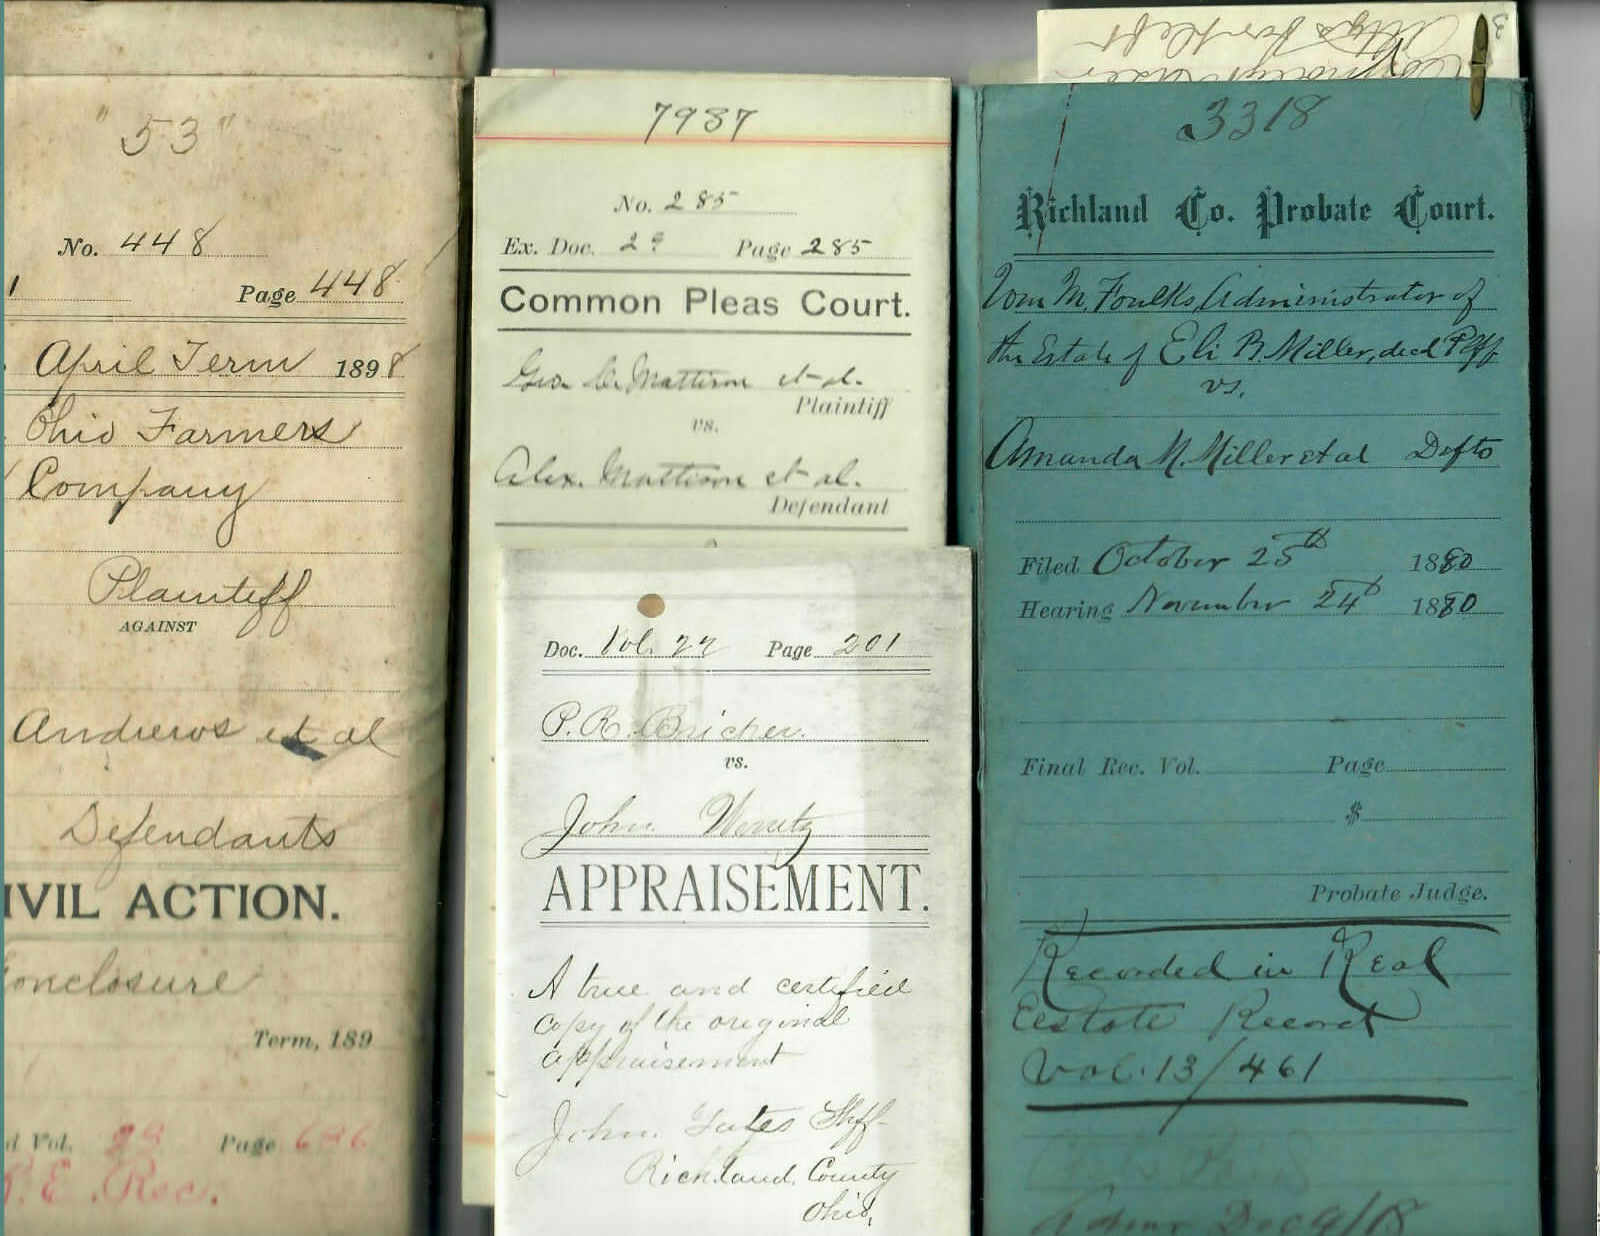 "53"
No. 448
Page 448
April Term 1898
Ohio Farmers
Company
Plaintiff
AGAINST
Andrews et al
Defendants
IVIL ACTION.
Term, 189
Vol. 29 Page 636
R. E. Rec.
7987
No. 285
Ex. Doc. 29 Page 285
Common Pleas Court.
Geo. C. Mattison et al.
Plaintiff
vs.
Alex. Mattison et al.
Defendant
Doc. Vol. 22 Page 201
P. R. Bricker.
vs.
John Wentz
APPRAISEMENT.
A true and certified
copy of the original
appraisement
John Gates Shff-
Richland County
Ohio,
3
3318
Richland Co. Probate Court.
Wm M. Foulks, Administrator of
the Estate of Eli B. Miller, decd Plff
vs.
Amanda M. Miller et al Defts
Filed October 25th 1880
Hearing November 24th 1880
Final Rec. Vol. Page
$
Probate Judge.
Recorded in Real
Eestate Record
Vol. 13/461